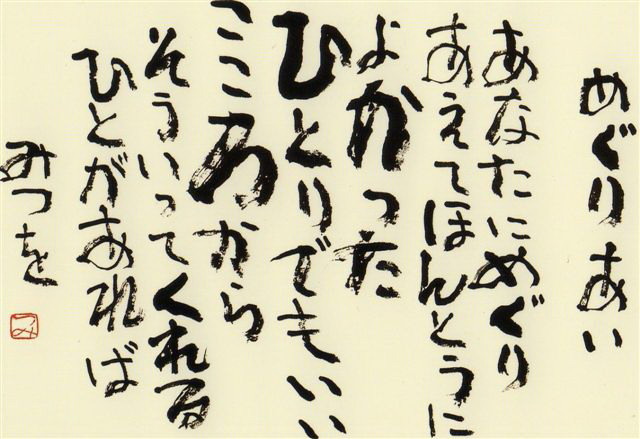 めぐりあい
あなたにめぐり
あえてほんとうに
よかった
ひとりでもいい
こころから
そういってくれる
ひとがあれば
みつを
み